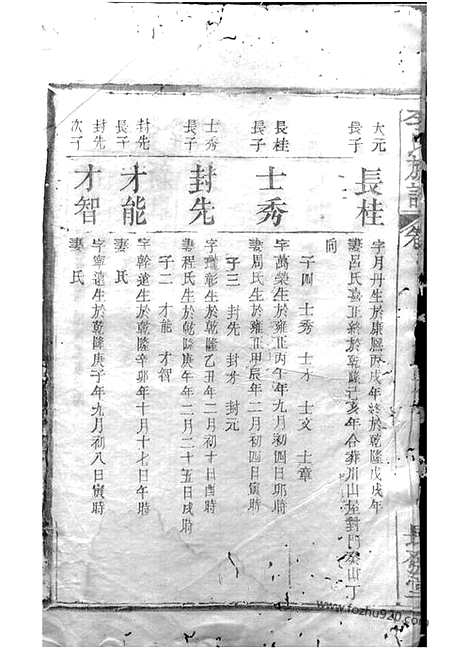 李氏族譜
卷
長發堂
大元
長子
長桂
字月丹生於康熙丙戌年終於乾隆戊戌年
妻呂氏嘉正終於乾隆己亥年合葬川山屋對門癸山丁
向
子四 士秀 士才 士文 士章
長桂
長子
士秀
字萬榮生於雍正丙午年九月初四日卯時
妻周氏生於雍正甲辰年二月初四日寅時
子三 封先 封才 封元
士秀
長子
封先
字瓊彰生於乾隆乙丑年二月初十日酉時
妻程氏生於乾隆庚午年二月二十五日戌時
子二 才能 才智
封先
長子
才能
字幹遠生於乾隆辛卯年十月十七日午時
妻 氏
封先
次子
才智
字寧遠生於乾隆庚子年九月初八日寅時
妻 氏
www.fozhu920.com